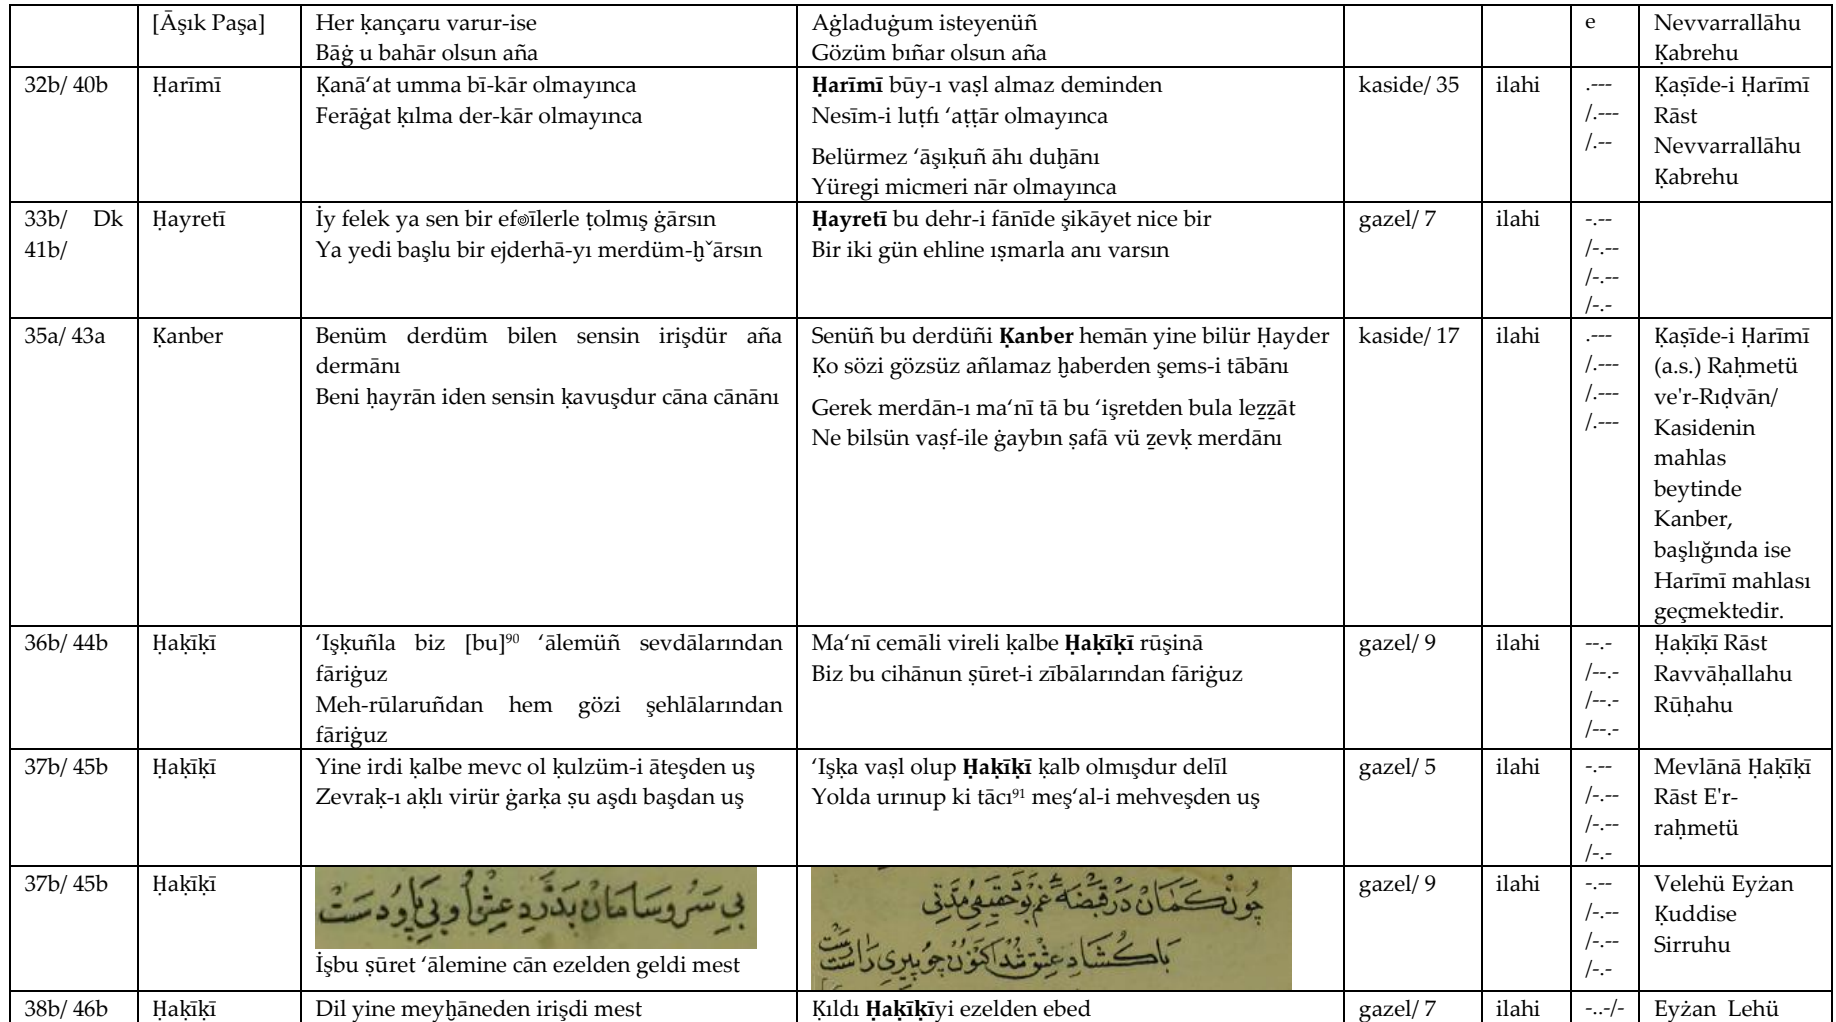 [Āşık Paşa]
Her ḳançaru varur-ise
Bāġ u bahār olsun aña
Aġladuġum isteyenüñ
Gözüm bıñar olsun aña
e
Nevvarrallāhu
Ḳabrehu
32b/ 40b
Ḥarīmī
Ḳanā‘at umma bī-kār olmayınca
Ferāġat ḳılma der-kār olmayınca
Ḥarīmī būy-ı vaṣl almaz deminden
Nesīm-i luṭfı ‘aṭṭār olmayınca
Belürmez ‘āşıḳuñ āhı duḫānı
Yüregi micmeri nār olmayınca
kaside/ 35
ilahi
.---
/.---
/.--
Ḳaṣīde-i Ḥarīmī
Rāst
Nevvarrallāhu
Ḳabrehu
33b/ Dk
41b/
Ḥayretī
İy felek ya sen bir ef๏īlerle ṭolmış ġārsın
Ya yedi başlu bir ejderhā-yı merdüm-ḫˇārsın
Ḥayretī bu dehr-i fānīde şikāyet nice bir
Bir iki gün ehline ıṣmarla anı varsın
gazel/ 7
ilahi
-.--
/-.--
/-.--
/-.-
35a/ 43a
Ḳanber
Benüm derdüm bilen sensin irişdür aña
dermānı
Beni ḥayrān iden sensin ḳavuşdur cāna cānānı
Senüñ bu derdüñi Ḳanber hemān yine bilür Ḥayder
Ḳo sözi gözsüz añlamaz ḫaberden şems-i tābānı
Gerek merdān-ı ma‘nī tā bu ‘işretden bula leẕẕāt
Ne bilsün vaṣf-ile ġaybın ṣafā vü ẕevḳ merdānı
kaside/ 17
ilahi
.---
/.---
/.---
/.---
Ḳaṣīde-i Ḥarīmī
(a.s.) Raḥmetü
ve'r-Rıḍvān/
Kasidenin
mahlas
beytinde
Kanber,
başlığında ise
Harīmī mahlası
geçmektedir.
36b/ 44b
Ḥaḳīḳī
‘Işḳuñla biz [bu]⁹⁰ ‘ālemüñ sevdālarından
fāriġuz
Meh-rūlaruñdan hem gözi şehlālarından
fāriġuz
Ma‘nī cemāli vireli ḳalbe Ḥaḳīḳī rūşinā
Biz bu cihānun ṣūret-i zībālarından fāriġuz
gazel/ 9
ilahi
--.-
/--.-
/--.-
/--.-
Ḥaḳīḳī Rāst
Ravvāḥallahu
Rūḥahu
37b/ 45b
Ḥaḳīḳī
Yine irdi ḳalbe mevc ol ḳulzüm-i āteşden uş
Zevraḳ-ı aḳlı virür ġarḳa ṣu aşdı başdan uş
‘Işḳa vaṣl olup Ḥaḳīḳī ḳalb olmışdur delīl
Yolda urınup ki tācı⁹¹ meş‘al-i mehveşden uş
gazel/ 5
ilahi
-.--
/-.--
/-.--
/-.-
Mevlānā Ḥaḳīḳī
Rāst E'r-
raḥmetü
37b/ 45b
Ḥaḳīḳī
بی سر و سامان بدرد عشق او بی پا و دست
İşbu ṣūret ‘ālemine cān ezelden geldi mest
چون کمان در قبضهٔ غم بود حقیقی مدتی
با کشاد عشق شد اکنون چو تیری راست
gazel/ 9
ilahi
-.--
/-.--
/-.--
/-.-
Velehü Eyżan
Ḳuddise
Sirruhu
38b/ 46b
Ḥaḳīḳī
Dil yine meyḫāneden irişdi mest
Ḳıldı Ḥaḳīḳīyi ezelden ebed
gazel/ 7
ilahi
-..-/-
Eyżan Lehü